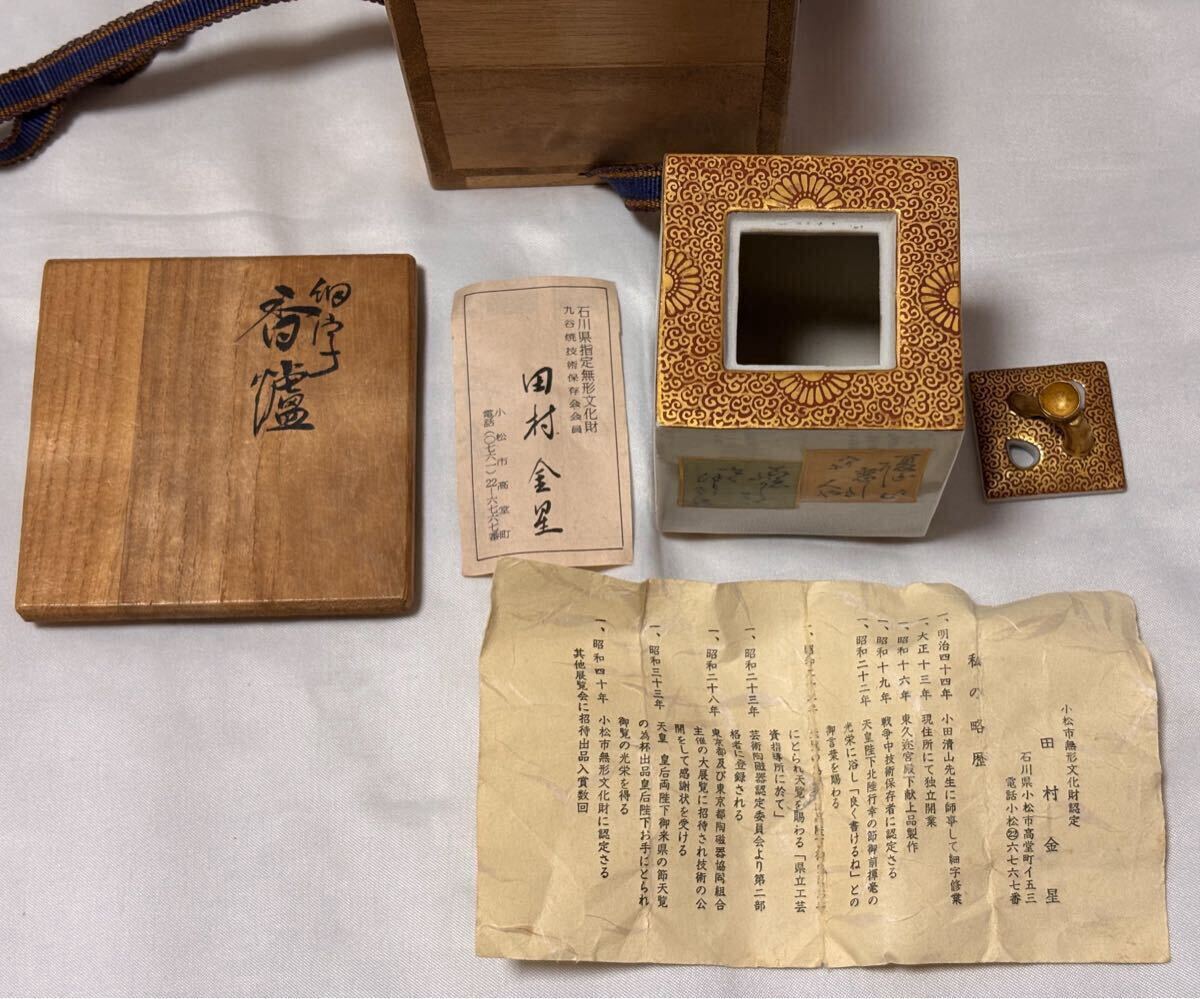 細字
香爐
石川県指定無形文化財
九谷焼技術保存会会員
田村金星
小松市高堂町
電話(〇七六一)22-六七六七番
小松市無形文化財認定
田村金星
石川県小松市高堂町イ五三
電話小松㉒六七六七番
私の略歴
一、明治四十四年 小田清山先生に師事して細字修業
一、大正十三年 現住所にて独立開業
一、昭和十六年 東久迩宮殿下献上品製作
一、昭和十九年 戦争中技術保存者に認定さる
一、昭和二十二年 天皇陛下北陸行幸の節御前揮毫の
光栄に浴し「良く書けるね」との
御言葉を賜わる
にとられ天覧を賜わる「県立工芸
資指導所に於て」
一、昭和二十三年 芸術陶磁器認定委員会より第二部
格者に登録される
一、昭和二十八年 東京都及び東京都陶磁器協同組合
主催の大展覧に招待され技術の公
開をして感謝状を受ける
一、昭和三十三年 天皇 皇后両陛下御来県の節天覧
の為杯出品皇后陛下お手にとられ
御覧の光栄を得る
一、昭和四十年 小松市無形文化財に認定さる
其他展覧会に招待出品入賞数回